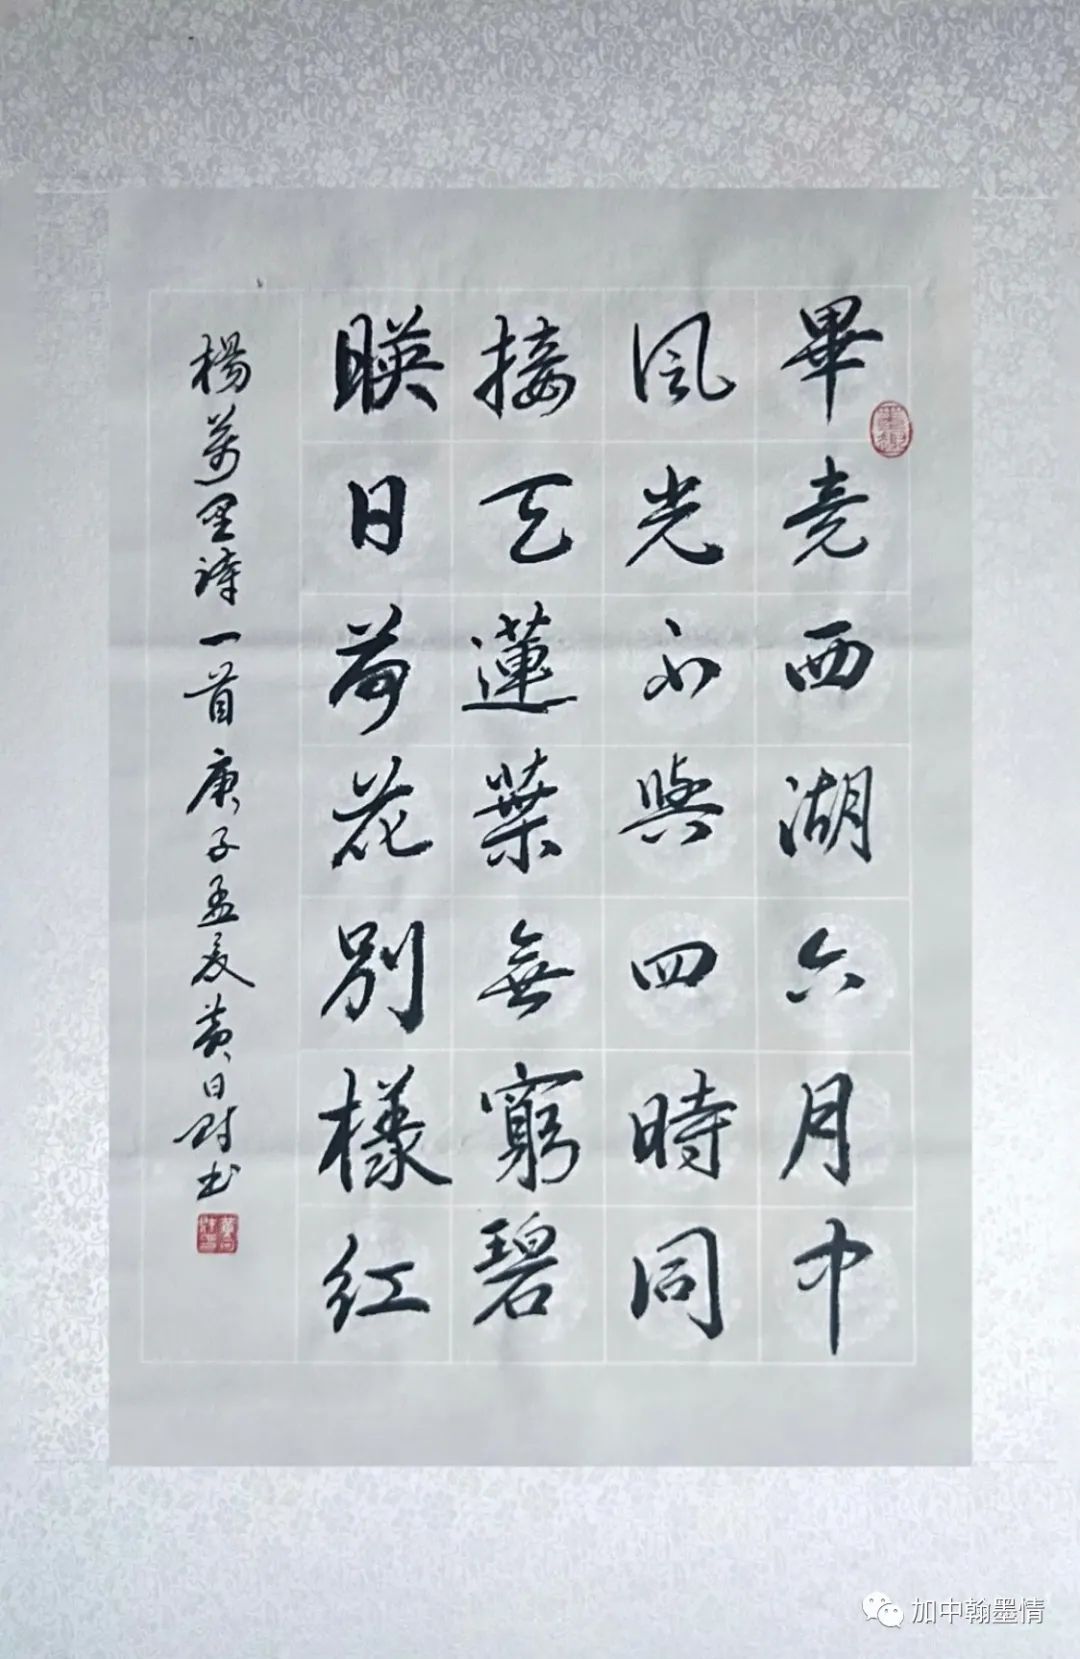 畢竟西湖六月中
風光不與四時同
接天蓮葉無窮碧
暎日荷花別樣紅
楊萬里詩一首庚子孟夏黄日財书
加中翰墨情